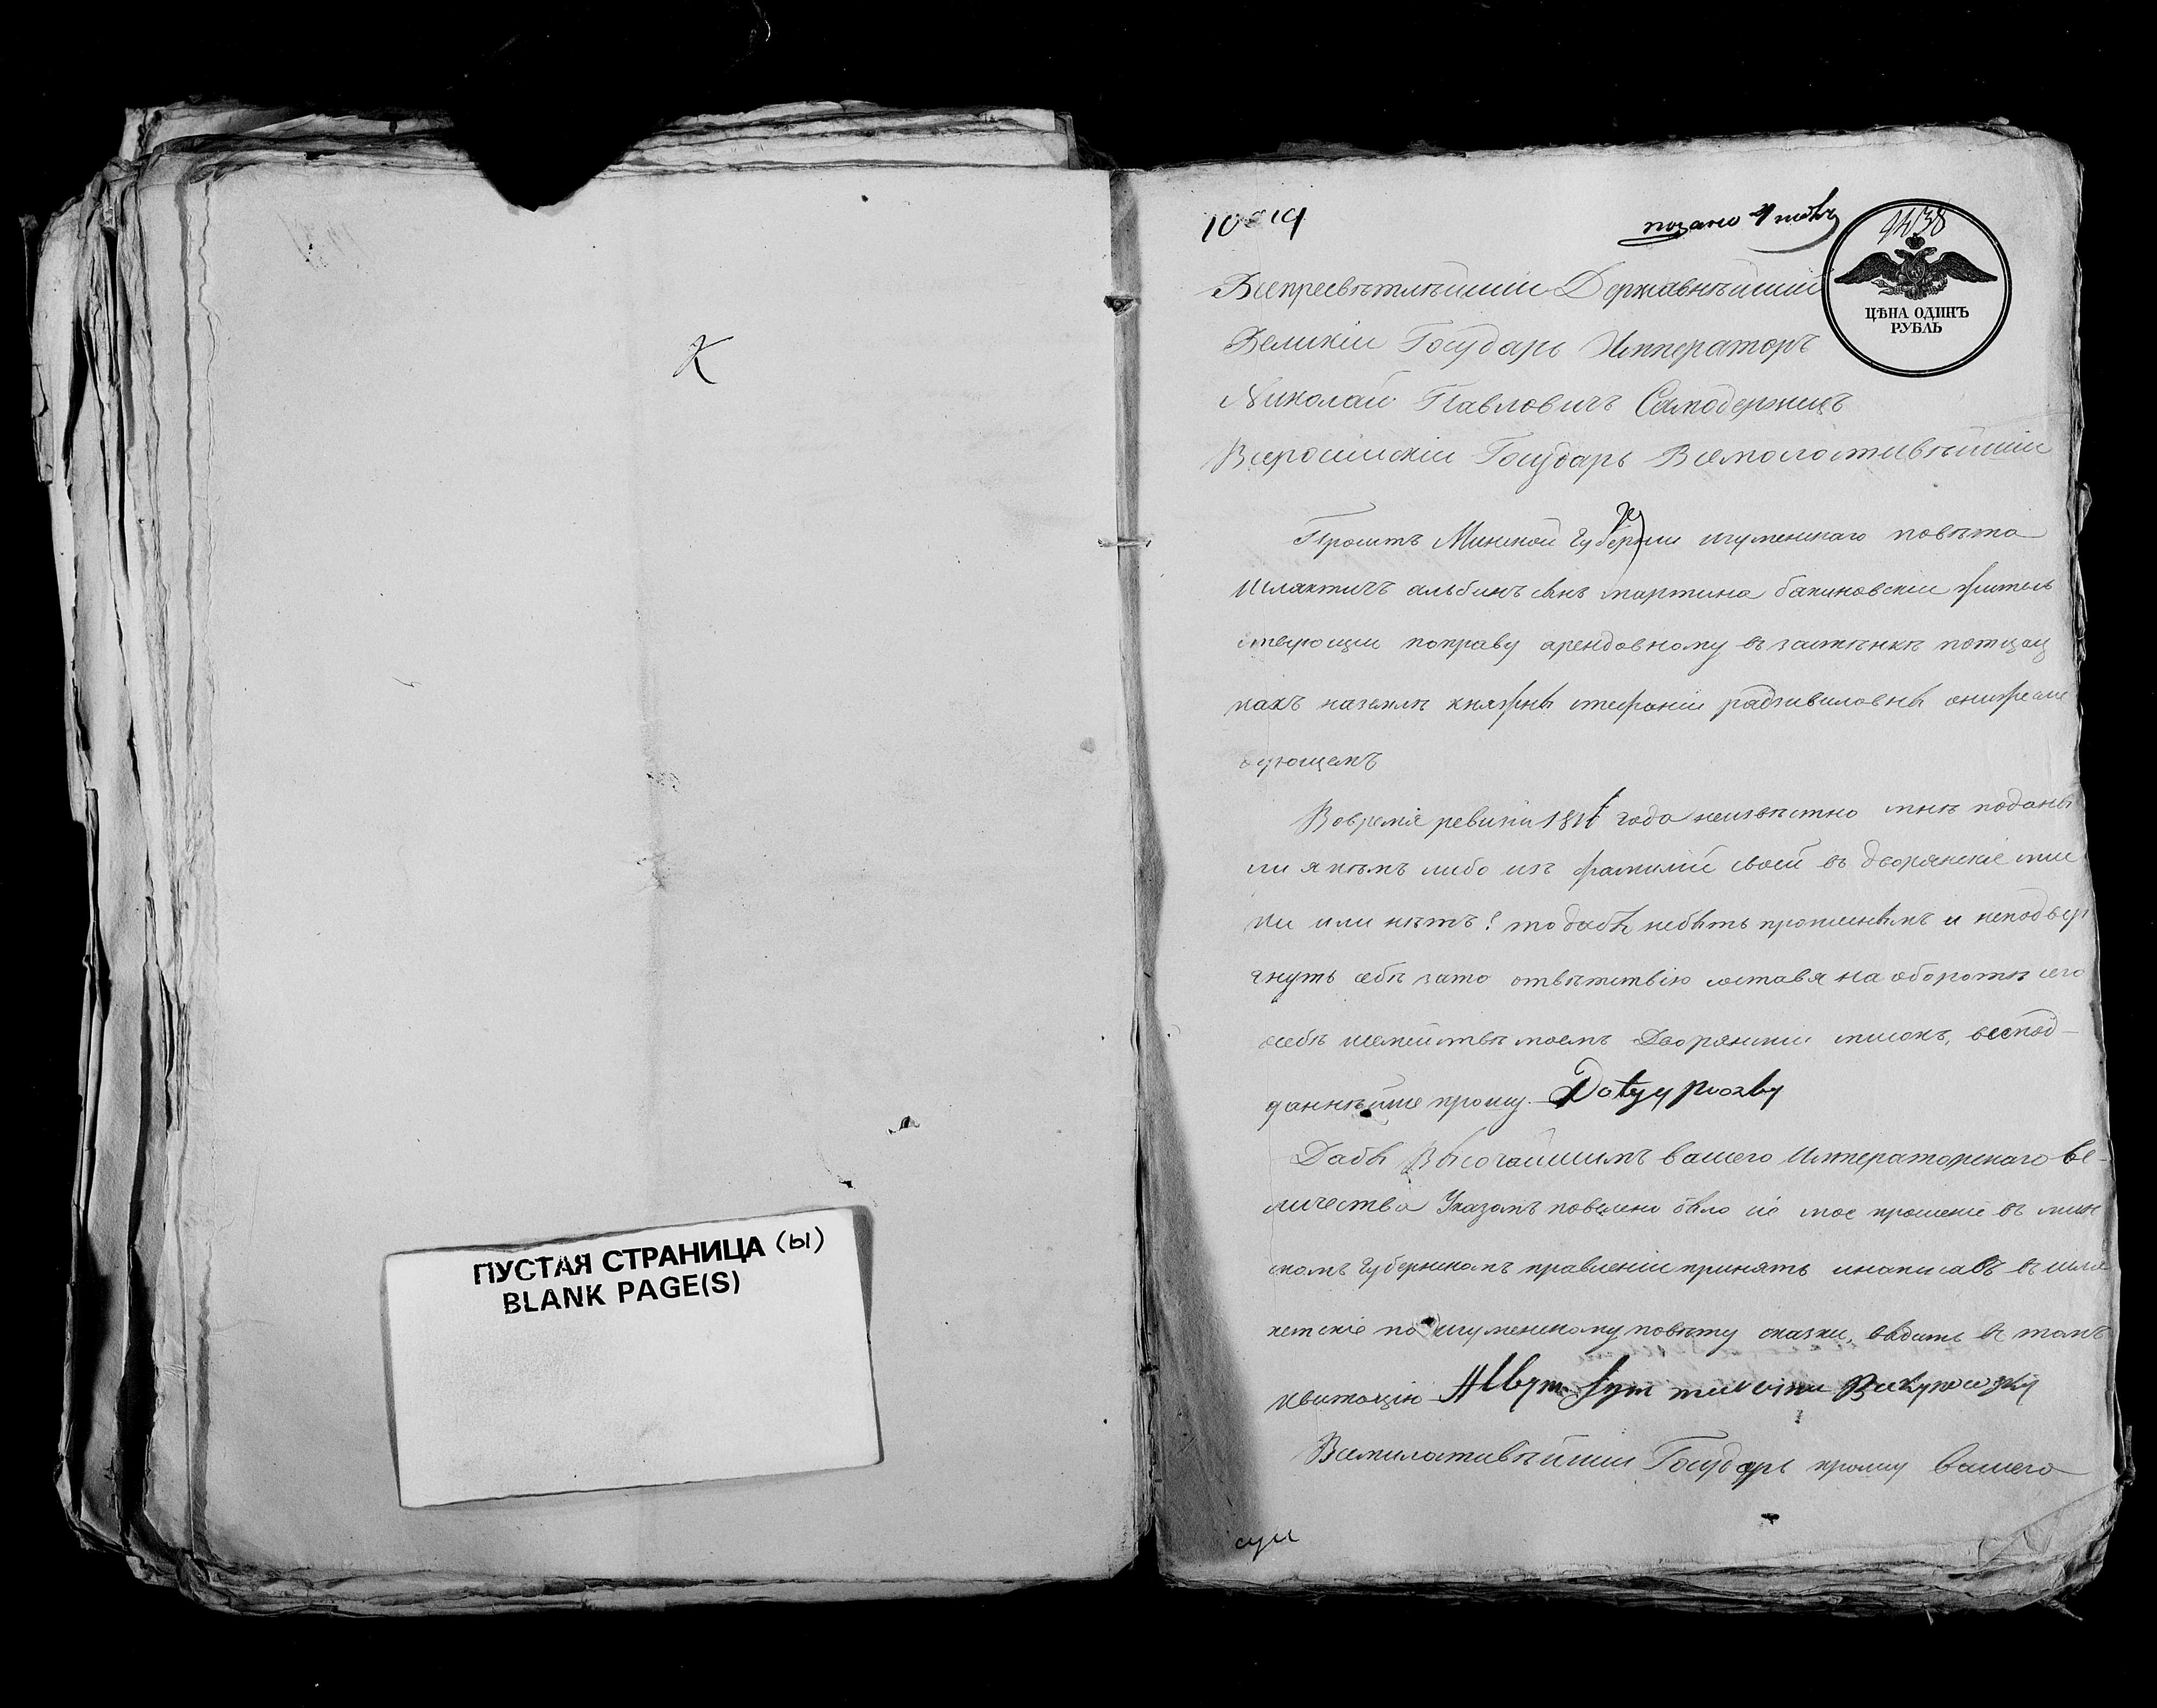 К
ПУСТАЯ СТРАНИЦА (ы)
BLANK PAGE(S)
подано 4 майя
1438
ЦѢНА ОДИНЪ
РУБЛЬ
Всепресвѣтлѣишии Державнѣишии
Великіи Государь Императоръ
Николай Павловичъ Самодержецъ
Всеросіискіи Государь Всемолостивѣйшіи
Проситъ Минской губерніи игуменскаго повѣта
Шляхтичъ альбинъ сынъ мартина бакиновскіи жителъ
ствующіи поправу арендовному въ застѣнкѣ потцац
кахъ наземлѣ княжнѣ стефаніи радзивиловны онижесле
дующемъ
Вовремя ревизіи 1811 года неизвѣстно мнѣ поданы
ли якѣмъ либо изъ фамиліи своей въ дворянскіе спис
ки или нѣтъ? то дабы небыть прописнымъ и неподвер
гнуть себѣ зато отвѣтствію составя на оборотѣ сего
осебѣ исемействѣ моемъ Дворянскіи списокъ, всепод-
даннѣише прошу. Do tyy prozby
Дабы Высочайшимъ вашего Императорскаго ве-
личества Указомъ повелено было сіе мое прошеніе въ мин
скомъ губернскомъ правленіи принять инаписавъ въ шля
хетскіе по игуменскому повѣту сказки, выдать въ томъ
квитацію Albyn Syn marcina Bakynowzky
Всемилостивѣйшіи Государь прошу вашего